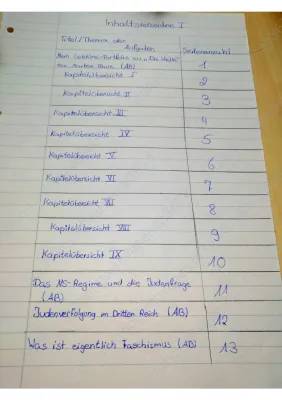 Inhaltsverzeichnis I
Titel/Thema der
Aufgaben
Seitenanzahl
Mein Lektüre-Portfolio zu „Die Welle"
von Morton Rhue (AB)
1
Kapitelübersicht I
2
Kapitelübersicht II
3
Kapitelübersicht III
4
Kapitelübersicht IV
5
Kapitelübersicht V
6
Kapitelübersicht VI
7
Kapitelübersicht VII
8
Kapitelübersicht VIII
9
Kapitelübersicht IX
10
Das NS-Regime und die Judenfrage
(AB)
11
Judenverfolgung im Dritten Reich (AB)
12
Was ist eigentlich Faschismus (AB)
13